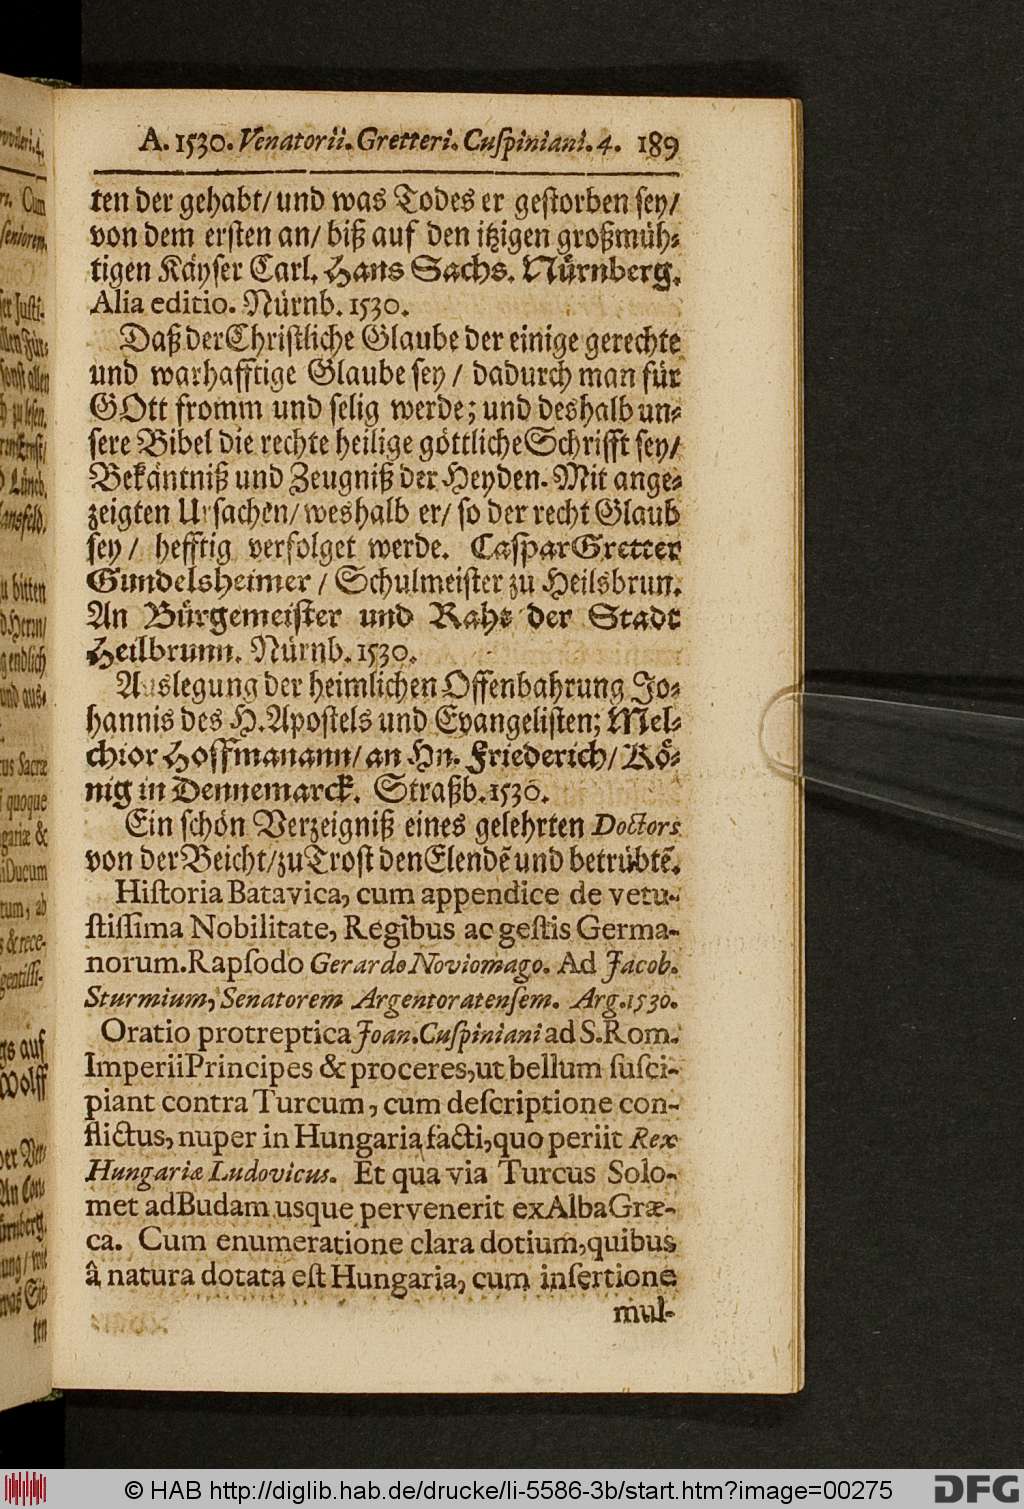 A. 1530. Venatorii. Gretteri. Cuſpiniani. 4. 189
ten der gehabt/ und was Todes er geſtorben ſey/
von dem erſten an/ biß auf den itzigen großmüh⸗
tigen Käyſer Carl. Hans Sachs. Nürnberg.
Alia editio. Nürnb. 1530.
Daß der Chriſtliche Glaube der einige gerechte
und warhafftige Glaube ſey / dadurch man für
GOtt fromm und ſelig werde; und deshalb un⸗
ſere Bibel die rechte heilige göttliche Schrifft ſey/
Bekäntniß und Zeugniß der Heyden. Mit ange⸗
zeigten Urſachen/ weshalb er/ ſo der recht Glaub
ſey / hefftig verfolget werde. Caſpar Gretter
Gundelsheimer / Schulmeiſter zu Heilsbrun.
An Bürgemeiſter und Raht der Stadt
Heilbrunn. Nürnb. 1530.
Auslegung der heimlichen Offenbahrung Jo⸗
hannis des H. Apoſtels und Evangeliſten; Mel⸗
chior Hoffmanann/ an Hn. Friederich/ Kö⸗
nig in Dennemarck. Straßb. 1530.
Ein ſchön Verzeigniß eines gelehrten Doctors
von der Beicht/ zu Troſt den Elendē und betrübtē.
Hiſtoria Batavica, cum appendice de vetu-
ſtiſſima Nobilitate, Regibus ac geſtis Germa-
norum. Rapſodo Gerardo Noviomago. Ad Jacob.
Sturmium, Senatorem Argentoratenſem. Arg. 1530.
Oratio protreptica Joan. Cuſpiniani ad S. Rom.
Imperii Principes & proceres, ut bellum ſuſci-
piant contra Turcum, cum deſcriptione con-
flictus, nuper in Hungaria facti, quo periit Rex
Hungariæ Ludovicus. Et qua via Turcus Solo-
met ad Budam usque pervenerit ex Alba Græ-
ca. Cum enumeratione clara dotium, quibus
â natura dotata eſt Hungaria, cum inſertione
mul-
© HAB http://diglib.hab.de/drucke/li-5586-3b/start.htm?image=00275
DFG